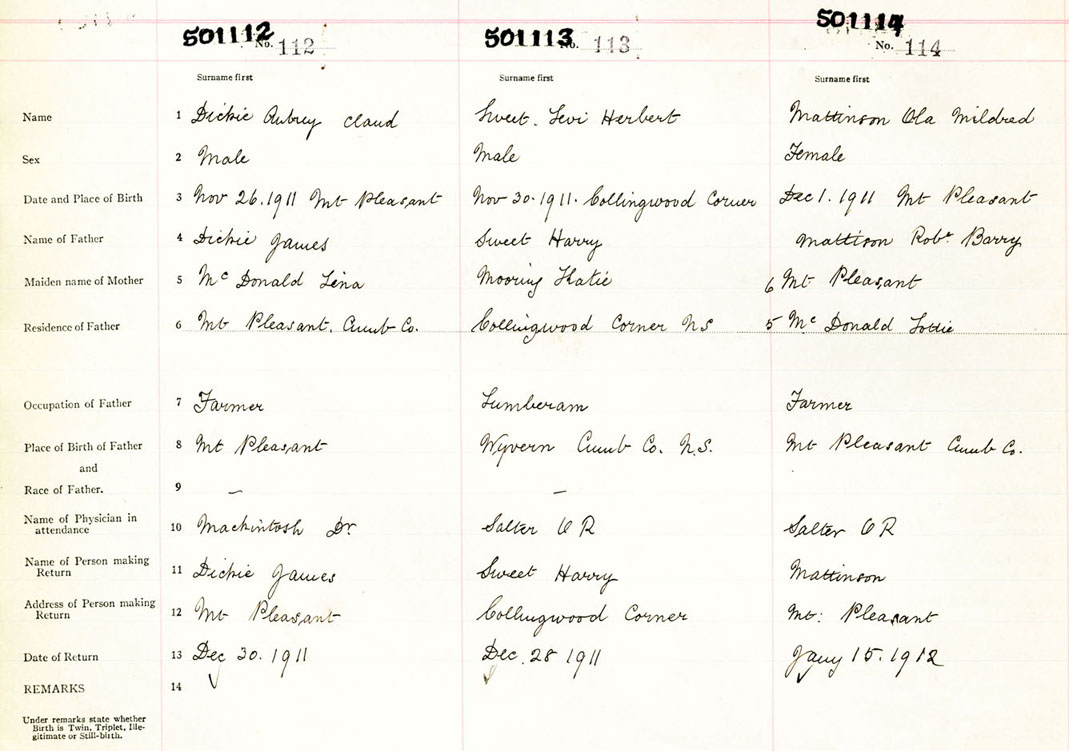 501112 No. 112 501113 No. 113 501114 No. 114
Surname first Surname first Surname first
Name 1 Dickie Aubrey Claud Sweet. Levi Herbert Mattinson Ola Mildred
Sex 2 Male Male Female
Date and Place of Birth 3 Nov 26.1911 Mt Pleasant Nov 30.1911. Collingwood Corner Dec 1. 1911 Mt Pleasant
Name of Father 4 Dickie James Sweet Harry Mattison Robt Barry
Maiden name of Mother 5 Mc Donald Lena Mooring Katie 6 Mt Pleasant
Residence of Father 6 Mt Pleasant. Cumb Co. Collingwood Corner NS 5 Mc Donald Lottie
Occupation of Father 7 Farmer Lumberam Farmer
Place of Birth of Father 8 Mt Pleasant Wyvern Cumb Co. N.S. Mt Pleasant Cumb Co.
and
Race of Father. 9 — —
Name of Physician in
attendance 10 Mackintosh Dr Salter O R Salter O R
Name of Person making
Return 11 Dickie James Sweet Harry Mattinson
Address of Person making
Return 12 Mt Pleasant Collingwood Corner Mt: Pleasant
Date of Return 13 Dec 30. 1911 Dec. 28 1911 Jany 15. 1912
REMARKS 14
Under remarks state whether
Birth is Twin, Triplet, Ille-
gitimate or Still-birth.